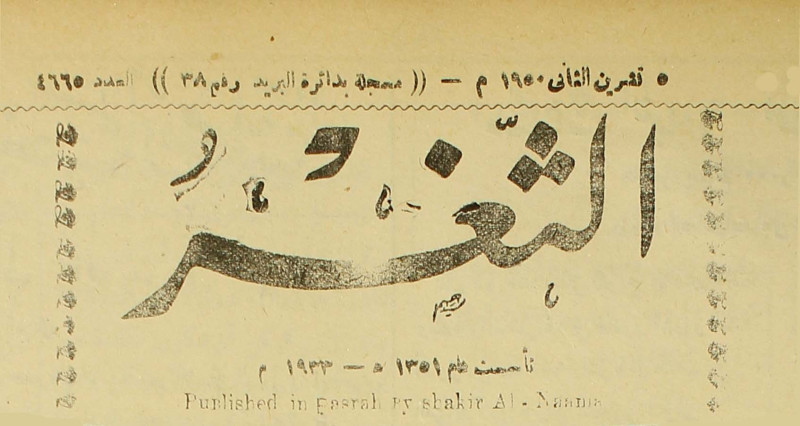 ٥ تشرين الثاني ١٩٥٠ م — (( مسجلة بدائرة البريد رقم ٣٨ )) العدد ٤٦٦٥
الثَّغْرُ
تأسست عام ١٣٥١ ه — ١٩٣٣ م
Published in Basrah By shakir Al - Naama